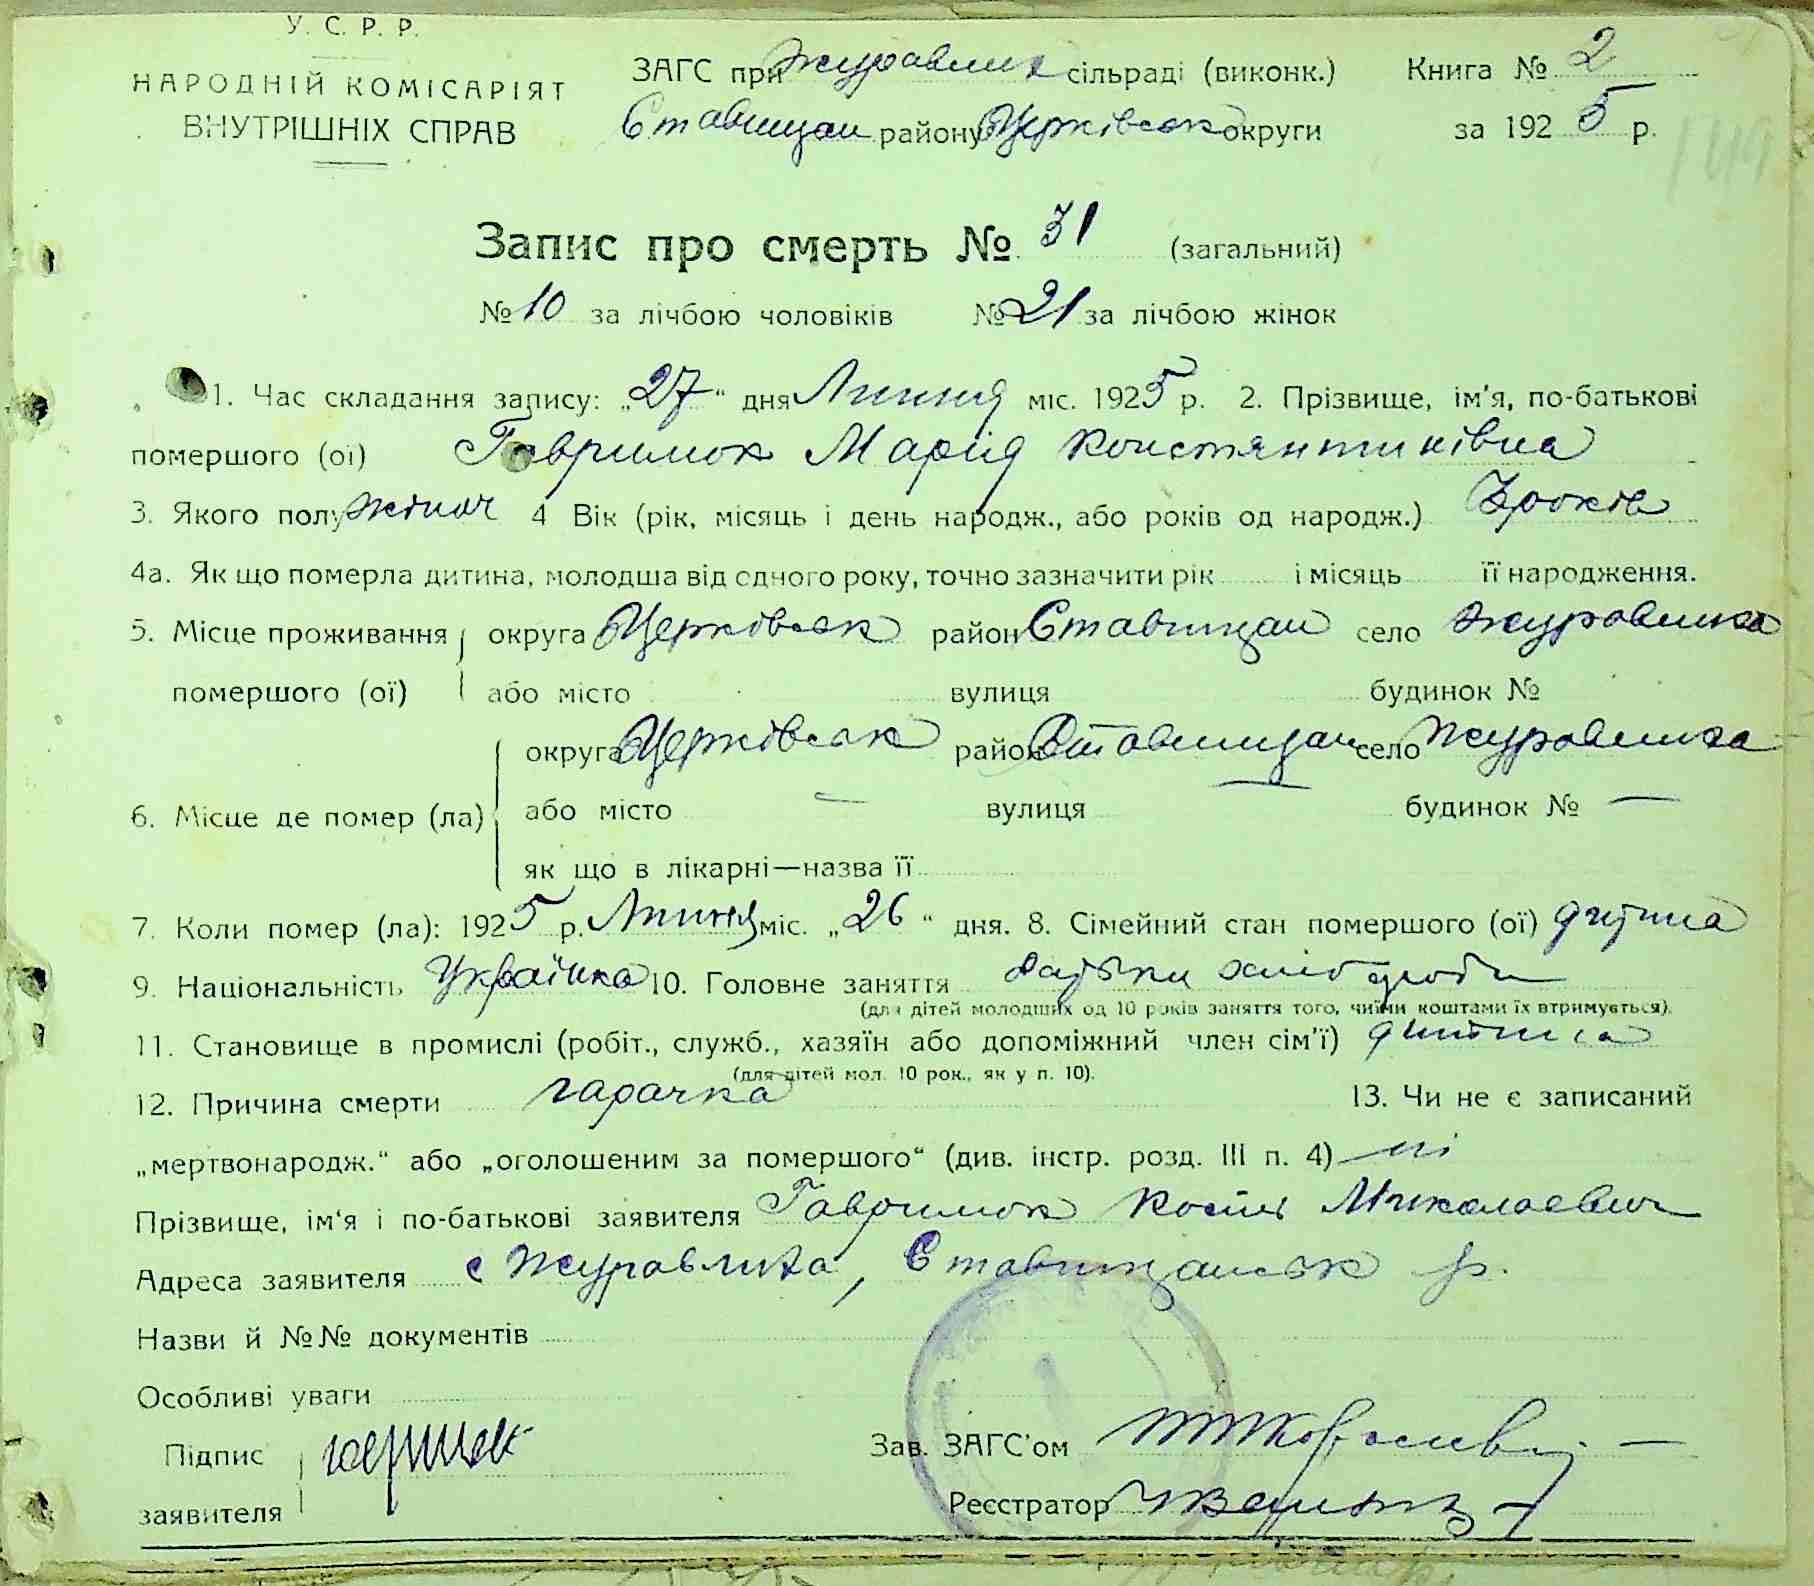 У. С. Р. Р.
НАРОДНІЙ КОМІСАРІЯТ
ВНУТРІШНІХ СПРАВ
ЗАГС при Журавлих сільраді (виконк.) Книга № 2
Ставищан району Б/Церківськ округи за 1925 р.
149
Запис про смерть № 31 (загальний)
№ 10 за лічбою чоловіків № 21 за лічбою жінок
1. Час складання запису: „27“ дня Липня міс. 1925 р. 2. Прізвище, ім'я, по-батькові
помершого (ої) Гаврилюк Марія Констянтинівна
3. Якого полу жіноч 4 Вік (рік, місяць і день народж., або років од народж.) 3 років
4а. Як що померла дитина, молодша від одного року, точно зазначити рік і місяць її народження.
5. Місце проживання округа Б/Церківськ район Ставищан село Журавлиха
помершого (ої) або місто вулиця будинок №
округа Б/Церківськ район Ставищан село Журавлиха
6. Місце де помер (ла) або місто — вулиця — будинок № —
як що в лікарні—назва її
7. Коли помер (ла): 1925 р. Липня міс. „26“ дня. 8. Сімейний стан помершого (ої) дитина
9. Національність Українка 10. Головне заняття батьки хлібороби
(для дітей молодших од 10 років заняття того, чиїми коштами їх втримується).
11. Становище в промислі (робіт., служб., хазяїн або допоміжний член сім'ї) дитина
(для дітей мол. 10 рок., як у п. 10).
12. Причина смерти гарачка 13. Чи не є записаний
„мертвонародж.“ або „оголошеним за помершого“ (див. інстр. розд. III п. 4) ні
Прізвище, ім'я і по-батькові заявителя Гаврилюк Костя Миколаевич
Адреса заявителя с Журавлиха, Ставищанськ р.
Назви й №№ документів
Особливі уваги
Підпис Зав. ЗАГС'ом
заявителя Реєстратор